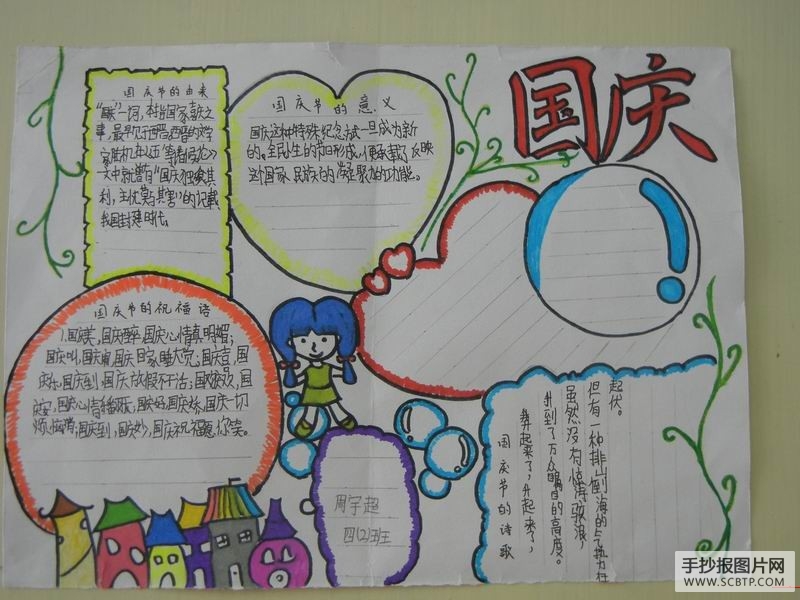 国庆
国庆节的由来
"国庆"一词,本指国家喜庆之
事,最早见于西晋。西晋的文学
家陆机在《五等诸侯论》
一文中就曾有"国庆独飨其
利,主忧莫与其害"的记载
我国封建时代
国庆节的意义
国庆这种特殊纪念方式一旦成为新
的。全民生的节日形成,便承载了反映
这个国家、民族的凝聚力的功能。
国庆节的祝福语
1.国庆美,国庆醉,国庆心情真明媚;
国庆叫,国庆闹,国庆日家睡大觉;国庆喜,国
庆乐,国庆到,国庆放假不干活;
国庆祝福愿你笑。
周宇超
四(2)班
国庆节的诗歌
升起来了,升起来了,
升到了万众瞩目的高度。
虽然没有惊涛骇浪,
但有一种排山倒海的气势在
起伏。
手抄报图片网
WWW.SCBTP.COM